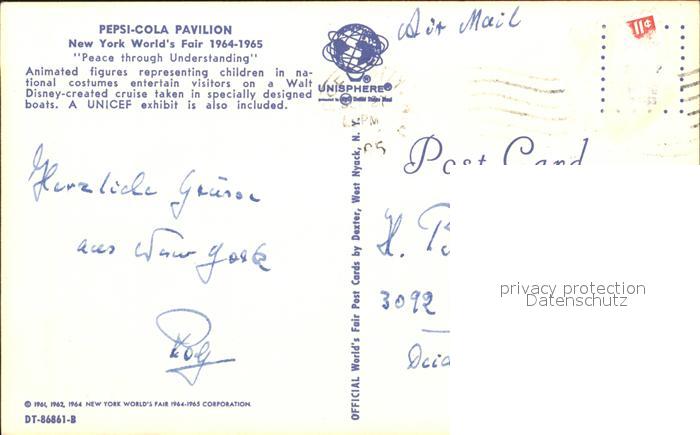 PEPSI-COLA PAVILION
New York World's Fair 1964-1965
"Peace through Understanding"
Animated figures representing children in na-
tional costumes entertain visitors on a Walt
Disney-created cruise taken in specially designed
boats. A UNICEF exhibit is also included.
UNISPHERE®
Air Mail
11¢
PM
Post Card
Herzliche Grüsse
aus New York
Rolf
H.
3092
OFFICIAL World's Fair Post Cards by Dexter, West Nyack, N. Y.
privacy protection
Datenschutz
© 1961, 1962, 1964 NEW YORK WORLD'S FAIR 1964-1965 CORPORATION.
DT-86861-B